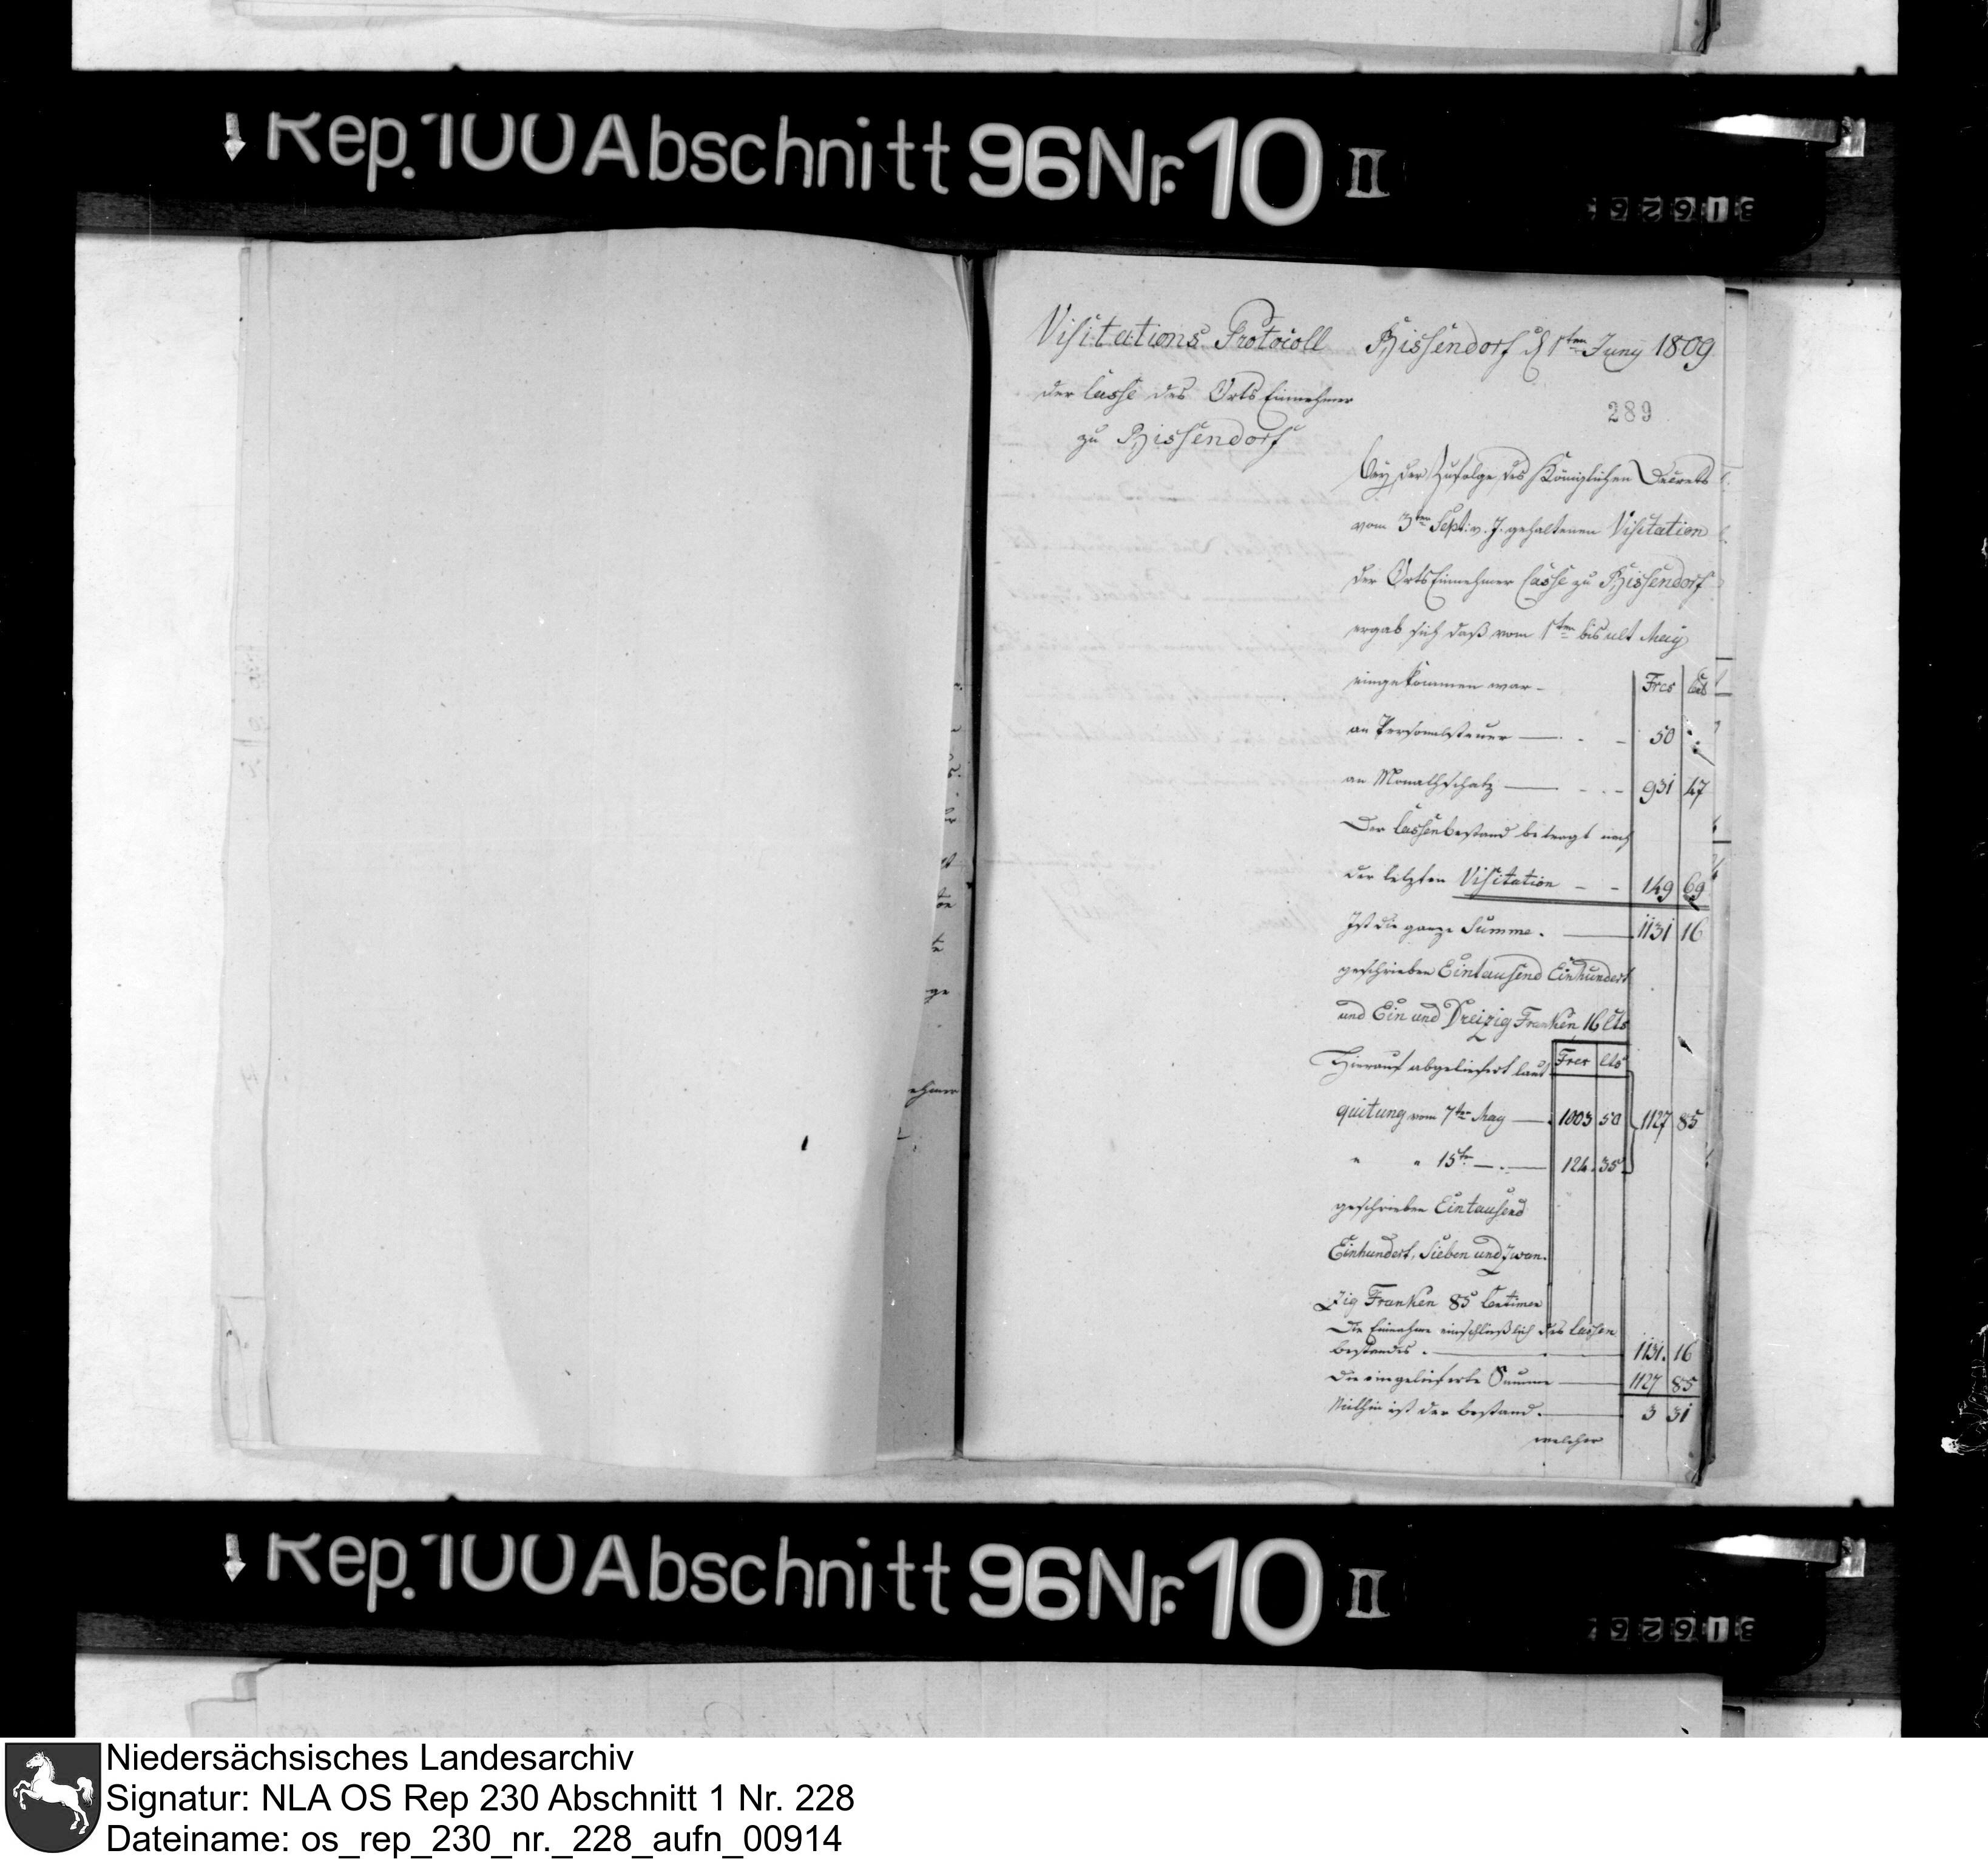 Rep. 100 Abschnitt 96 Nr. 10 II
Visitations Protocoll
der Casse des Orts Einnehmer
zu Bissendorf
Bissendorf d 1ten Juny 1809
289
Bey der Zufolge des Königlichen Decrets
vom 3ten Sept: v. J. gehaltenen Visitation
der Orts Einnehmer Casse zu Bissendorf
ergab sich daß vom 1ten bis ult May
eingekommen war - Frcs Cts
an Personalsteuer — 50 "
an Monathschatz — 931 47
Der Cassenbestand betragt nach
der letzten Visitation - - 149 69
Ist die ganze Summe. — 1131 16
geschrieben Eintausend Einhundert
und Ein und Dreizig Franken 16 Cts
Hierauf abgeliefert laut Frcs Cts
quitung vom 7ten May — 1003 50 1127 85
" " 15ten — 124 35
geschrieben Eintausend
Einhundert, Sieben und Zwan-
zig Franken 85 Centimen
Die Einnahme einschließlich des Cassen
bestandes. — 1131. 16
Die eingelieferte Summe — 1127 85
Mithin ist der bestand. — 3 31
welcher
ehmer
Rep. 100 Abschnitt 96 Nr. 10 II
Niedersächsisches Landesarchiv
Signatur: NLA OS Rep 230 Abschnitt 1 Nr. 228
Dateiname: os_rep_230_nr._228_aufn_00914